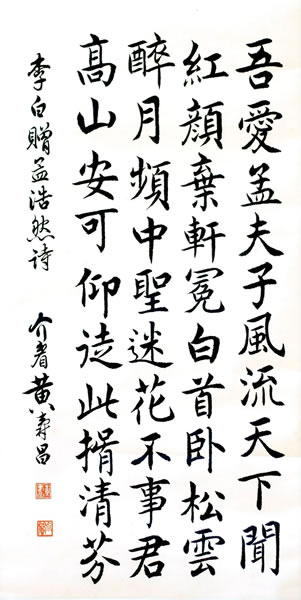 吾愛孟夫子風流天下聞
紅顔棄軒冕白首卧松雲
醉月頻中聖迷花不事君
高山安可仰徒此揖清芬
李白贈孟浩然诗
介者黄壽昌